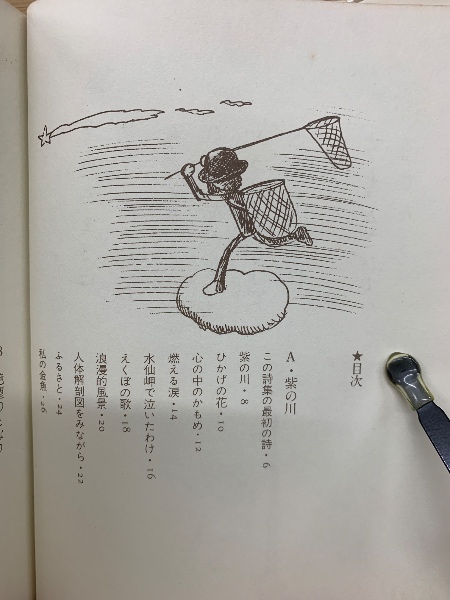 ★目次
A・紫の川
この詩集の最初の詩・6
紫の川・8
ひかげの花・10
心の中のかもめ・12
燃える涙・14
水仙岬で泣いたわけ・16
えくぼの歌・18
浪漫的風景・20
人体解剖図をみながら・22
ふるさと・24
私の金魚・26